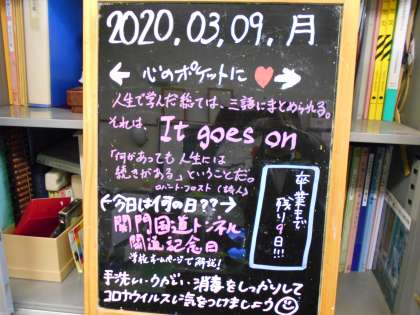 2020.03.09.月
← 心のポケットに ♥→
人生で学んだ総ては、三語にまとめられる。
それは、It goes on
「何があっても人生には
続きがある」ということだ。
ロバート・フロスト(詩人)
←今日は何の日??→
関門国道トンネル
開通記念日
学校ホームページで解説!
卒業まで
残り9日!!!
手洗い・うがい・消毒をしっかりして
コロナウイルスに気をつけましょう☺